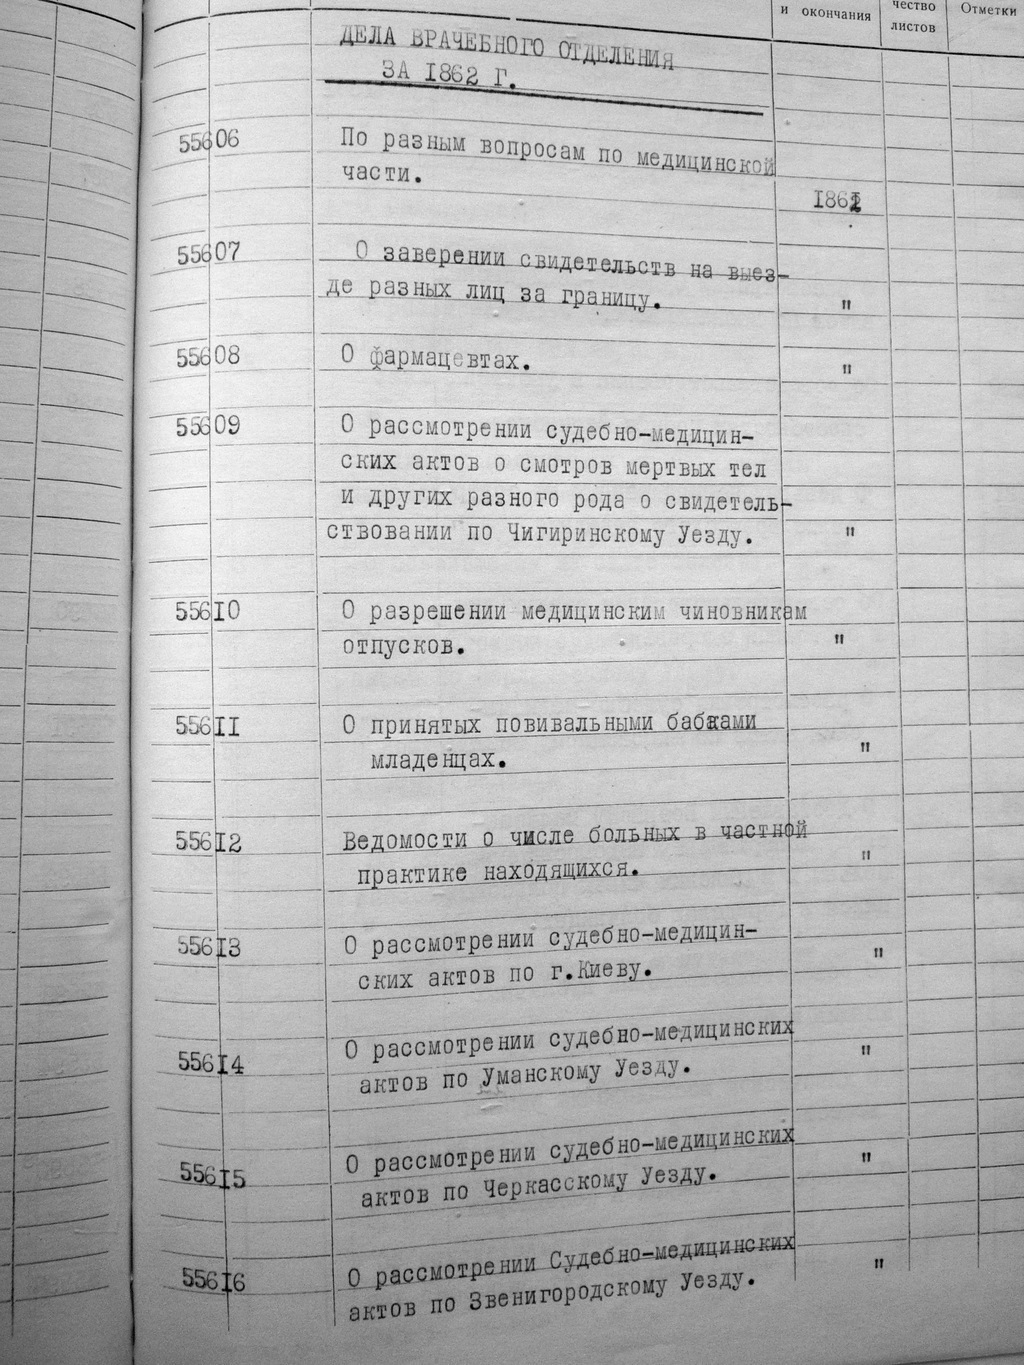 и окончания
чество
листов
Отметки
ДЕЛА ВРАЧЕБНОГО ОТДЕЛЕНИЯ
ЗА 1862 Г.
55606 По разным вопросам по медицинской
части.
1862
55607 О заверении свидетельств на выез-
де разных лиц за границу. "
55608 О фармацевтах. "
55609 О рассмотрении судебно-медицин-
ских актов о смотров мертвых тел
и других разного рода о свидетель-
ствовании по Чигиринскому Уезду. "
55610 О разрешении медицинским чиновникам
отпусков. "
55611 О принятых повивальными бабками
младенцах. "
55612 Ведомости о числе больных в частной
практике находящихся. "
55613 О рассмотрении судебно-медицин-
ских актов по г.Киеву. "
55614 О рассмотрении судебно-медицинских
актов по Уманскому Уезду. "
55615 О рассмотрении судебно-медицинских
актов по Черкасскому Уезду. "
55616 О рассмотрении Судебно-медицинских
актов по Звенигородскому Уезду. "